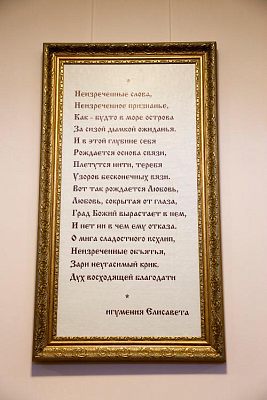 *
Неизреченные слова,
Неизреченное признанье,
Как - будто в море острова
За сизой дымкой ожиданья.
И в этой глубине себя
Рождается основа связи,
Плетутся нити, теребя
Узоров бесконечных вязи.
Вот так рождается Любовь,
Любовь, сокрытая от глаза,
Град Божий вырастает в нем,
И нет ни в чем ему отказа.
О мига сладостного всхлип,
Неизреченные объятья,
Зари неугасимый крик.
Дух восходящей благодати
*
игумения Елисавета